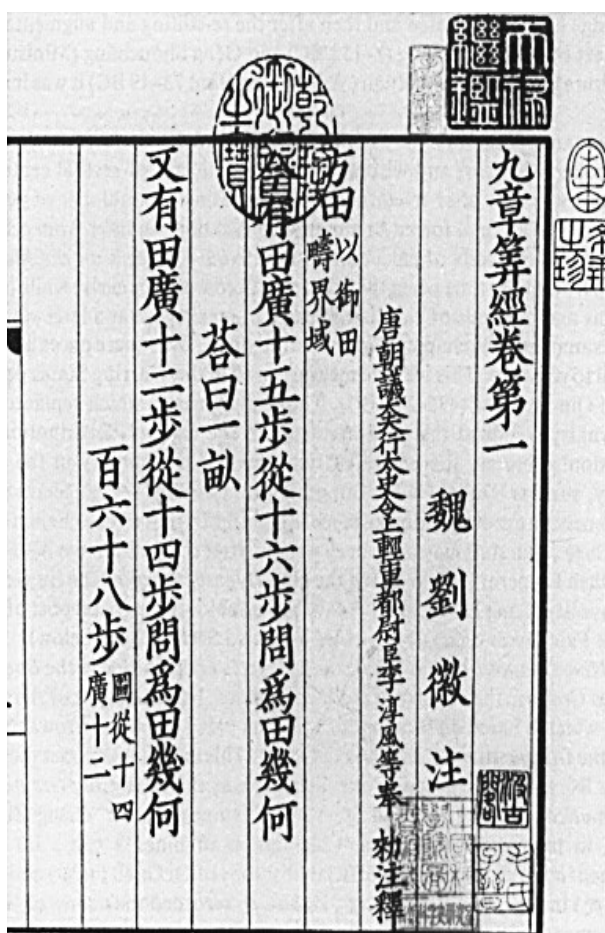 天祿繼鑑
乾隆御覽之寶
希世之珍
九章筭經卷第一
魏劉徽注
唐朝議大夫行太史令上輕車都尉臣李淳風等奉 勑注釋
方田 以御田疇界域
今有田廣十五步從十六步問爲田幾何
荅曰一畝
又有田廣十二步從十四步問爲田幾何
百六十八步 圖從十四廣十二
汲古閣